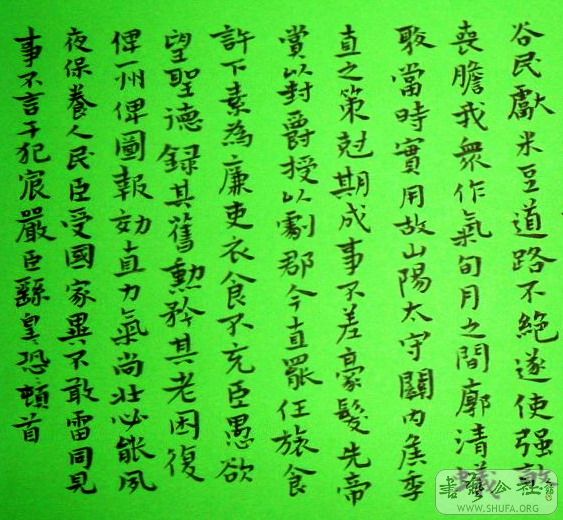 谷民獻米豆道路不絕遂使强敵
喪膽我衆作氣旬月之間廓清蟻
聚當時實用故山陽太守關内侯季
直之策尅期成事不差豪髮先帝
賞以封爵授以劇郡今直罷任旅食
許下素為廉吏衣食不充臣愚欲
望聖德録其舊勳矜其老困復
俾一州俾圖報効直力氣尚壯必能夙
夜保養人民臣受國家異不敢雷同見
事不言干犯宸嚴臣繇皇恐頓首
WWW.SHUFA.ORG